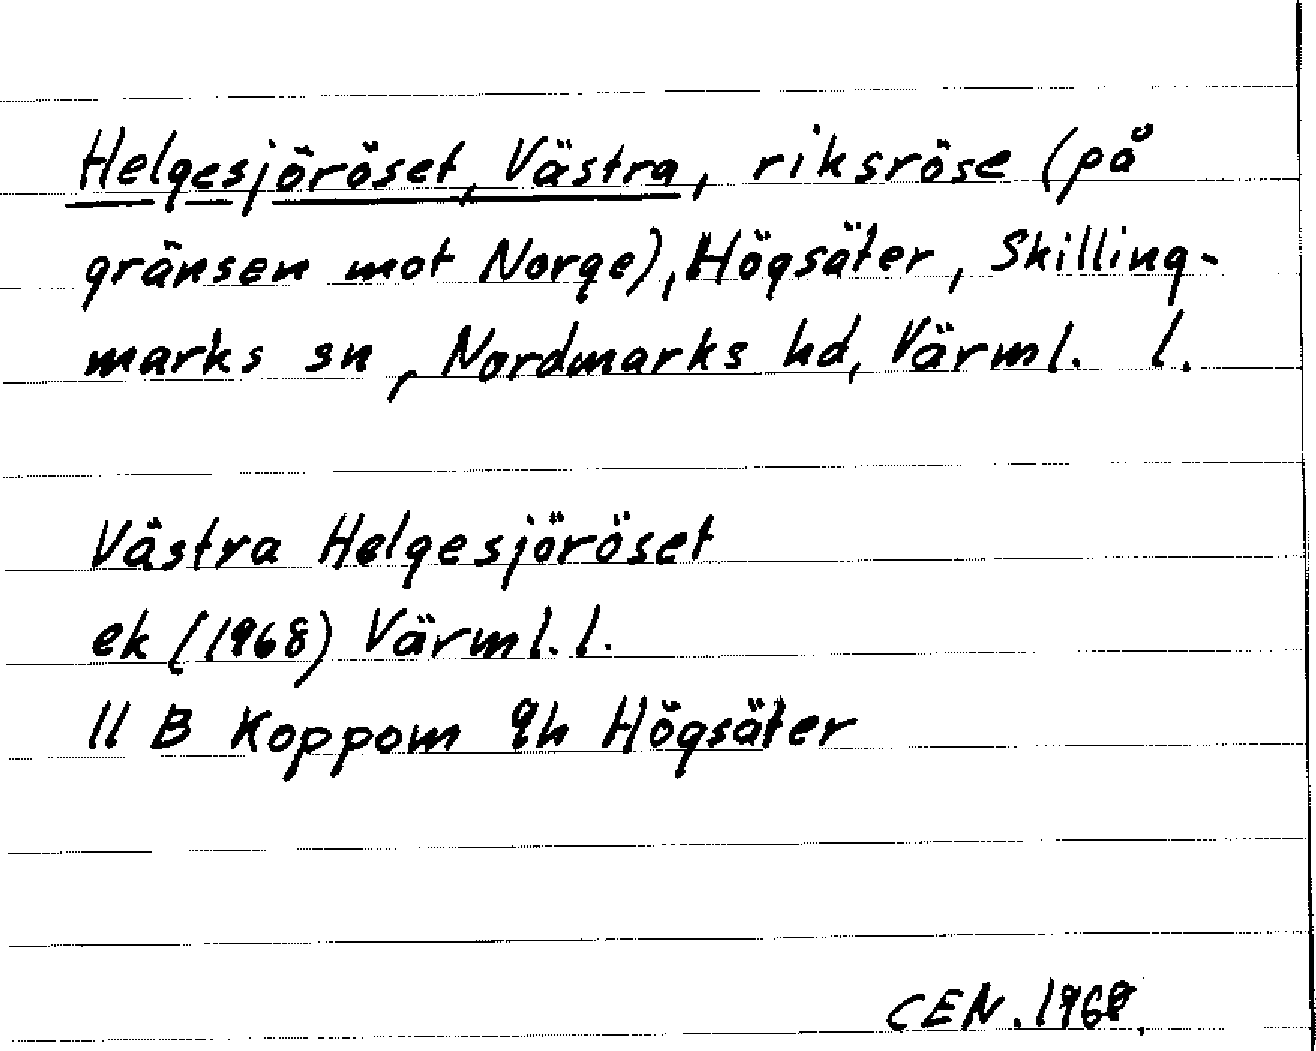 Helgesjöröset, Västra, riksröse (på
gränsen mot Norge), Högsäter, Skilling-
marks sn, Nordmarks hd, Värml. l.
Västra Helgesjöröset
ek (1968) Värml. l.
11 B Koppom 9h Högsäter
CEN. 1968.